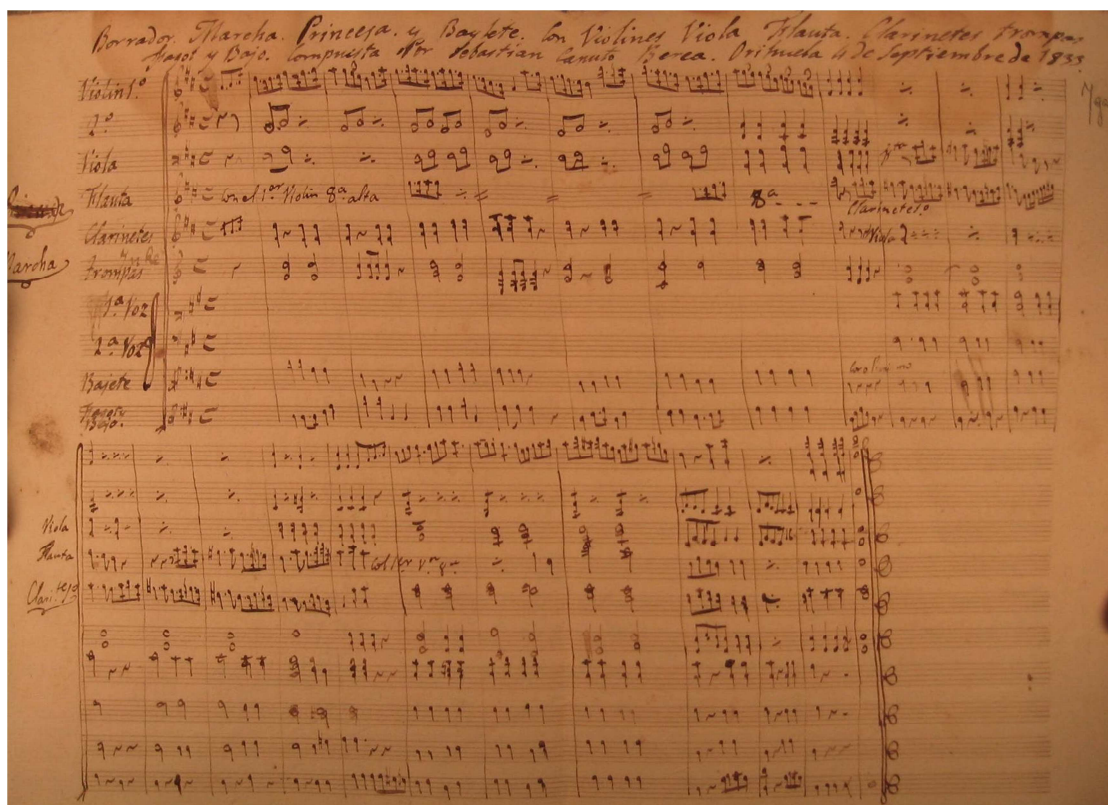 Borrador. Marcha. Princesa. y Baylete. Con Violines Viola Flauta. Clarinetes trompas
Fagot y Bajo. Compuesta Por Sebastian Canuto Berea. Orihuela 4 de Septiembre de 1833.
Violin 1.º
2.º
Viola
Flauta
Con el 1.er Violin 8.ª alta
8.ª
Clarinete 1.º
Clarinetes
Viola
Marcha
trompas
1.ª Voz
2.ª Voz
Bajete
Bajo.
Viola
Flauta